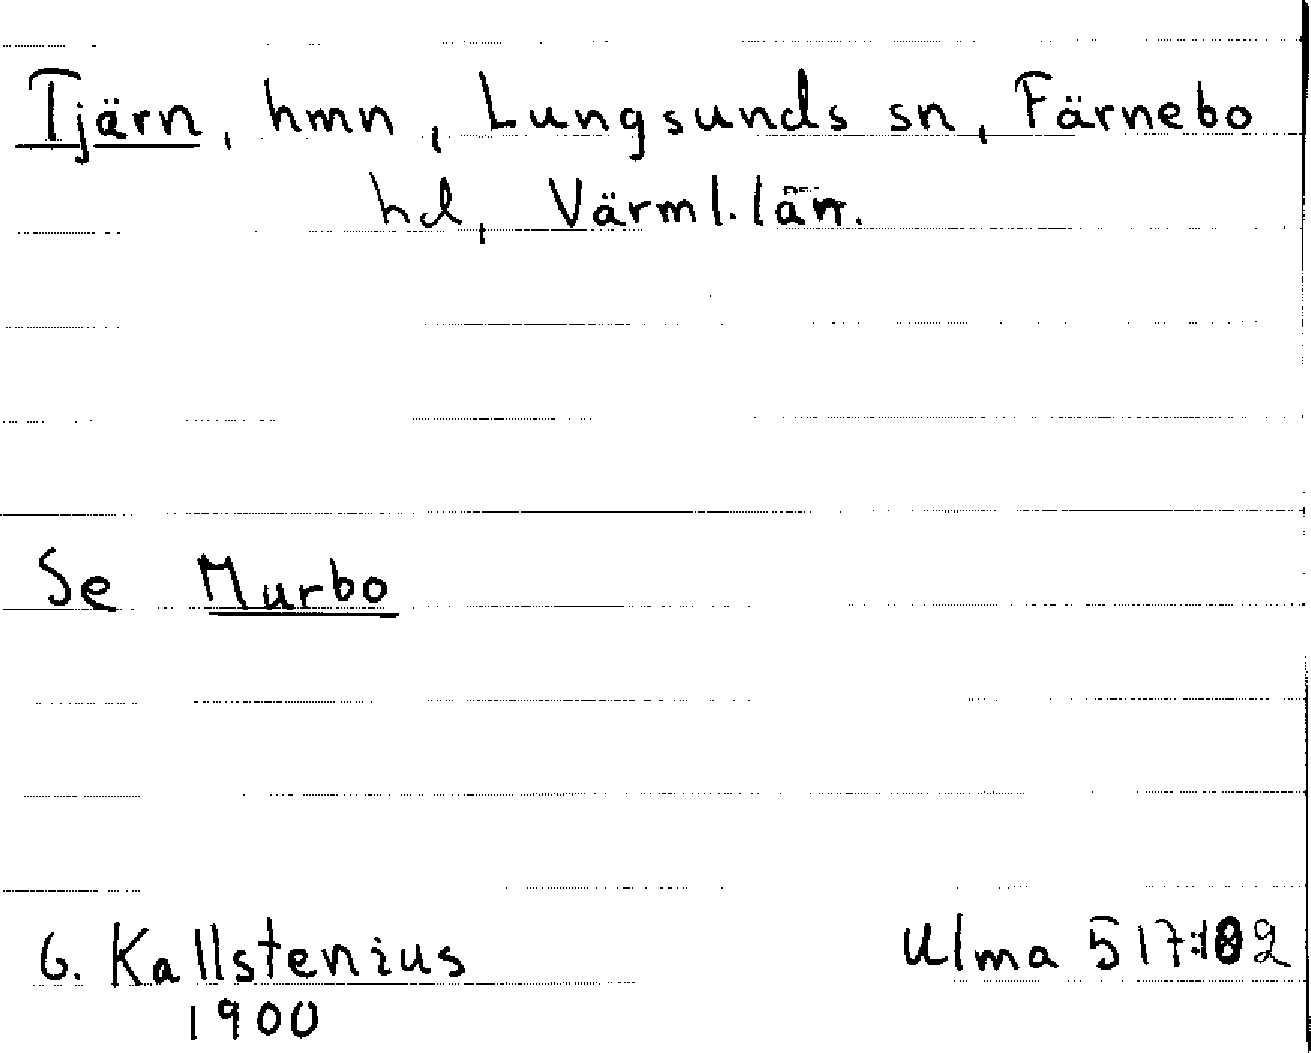 Tjärn, hmn, Lungsunds sn, Färnebo
hd, Värml. län.
Se Murbo
G. Kallstenius
1900
Ulma 517:102